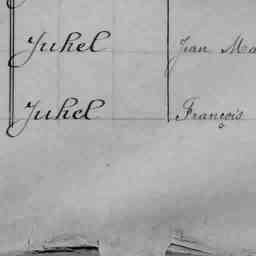 Juhel Jean Ma
Juhel François